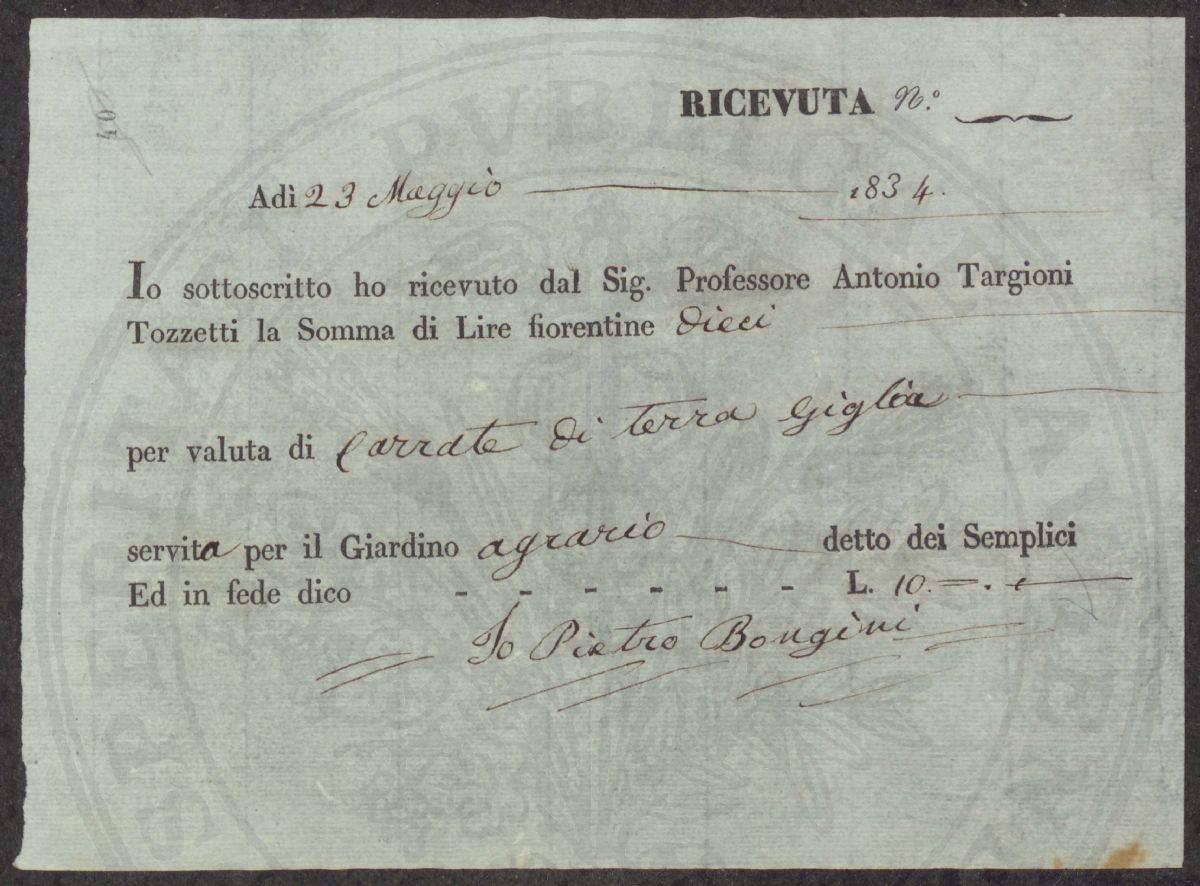 RICEVUTA N.º
Adì 23 Maggio 1834.
Io sottoscritto ho ricevuto dal Sig. Professore Antonio Targioni
Tozzetti la Somma di Lire fiorentine Dieci
per valuta di Carrate di terra Giglia
servita per il Giardino agrario detto dei Semplici
Ed in fede dico - - - - - - L. 10.=.
Io Pietro Bongini